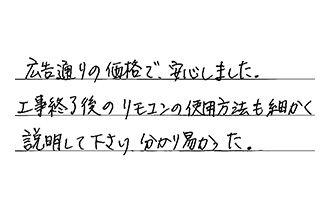 広告通りの価格で、安心しました。
工事終了後のリモコンの使用方法も細かく
説明して下さり、分かり易かった。